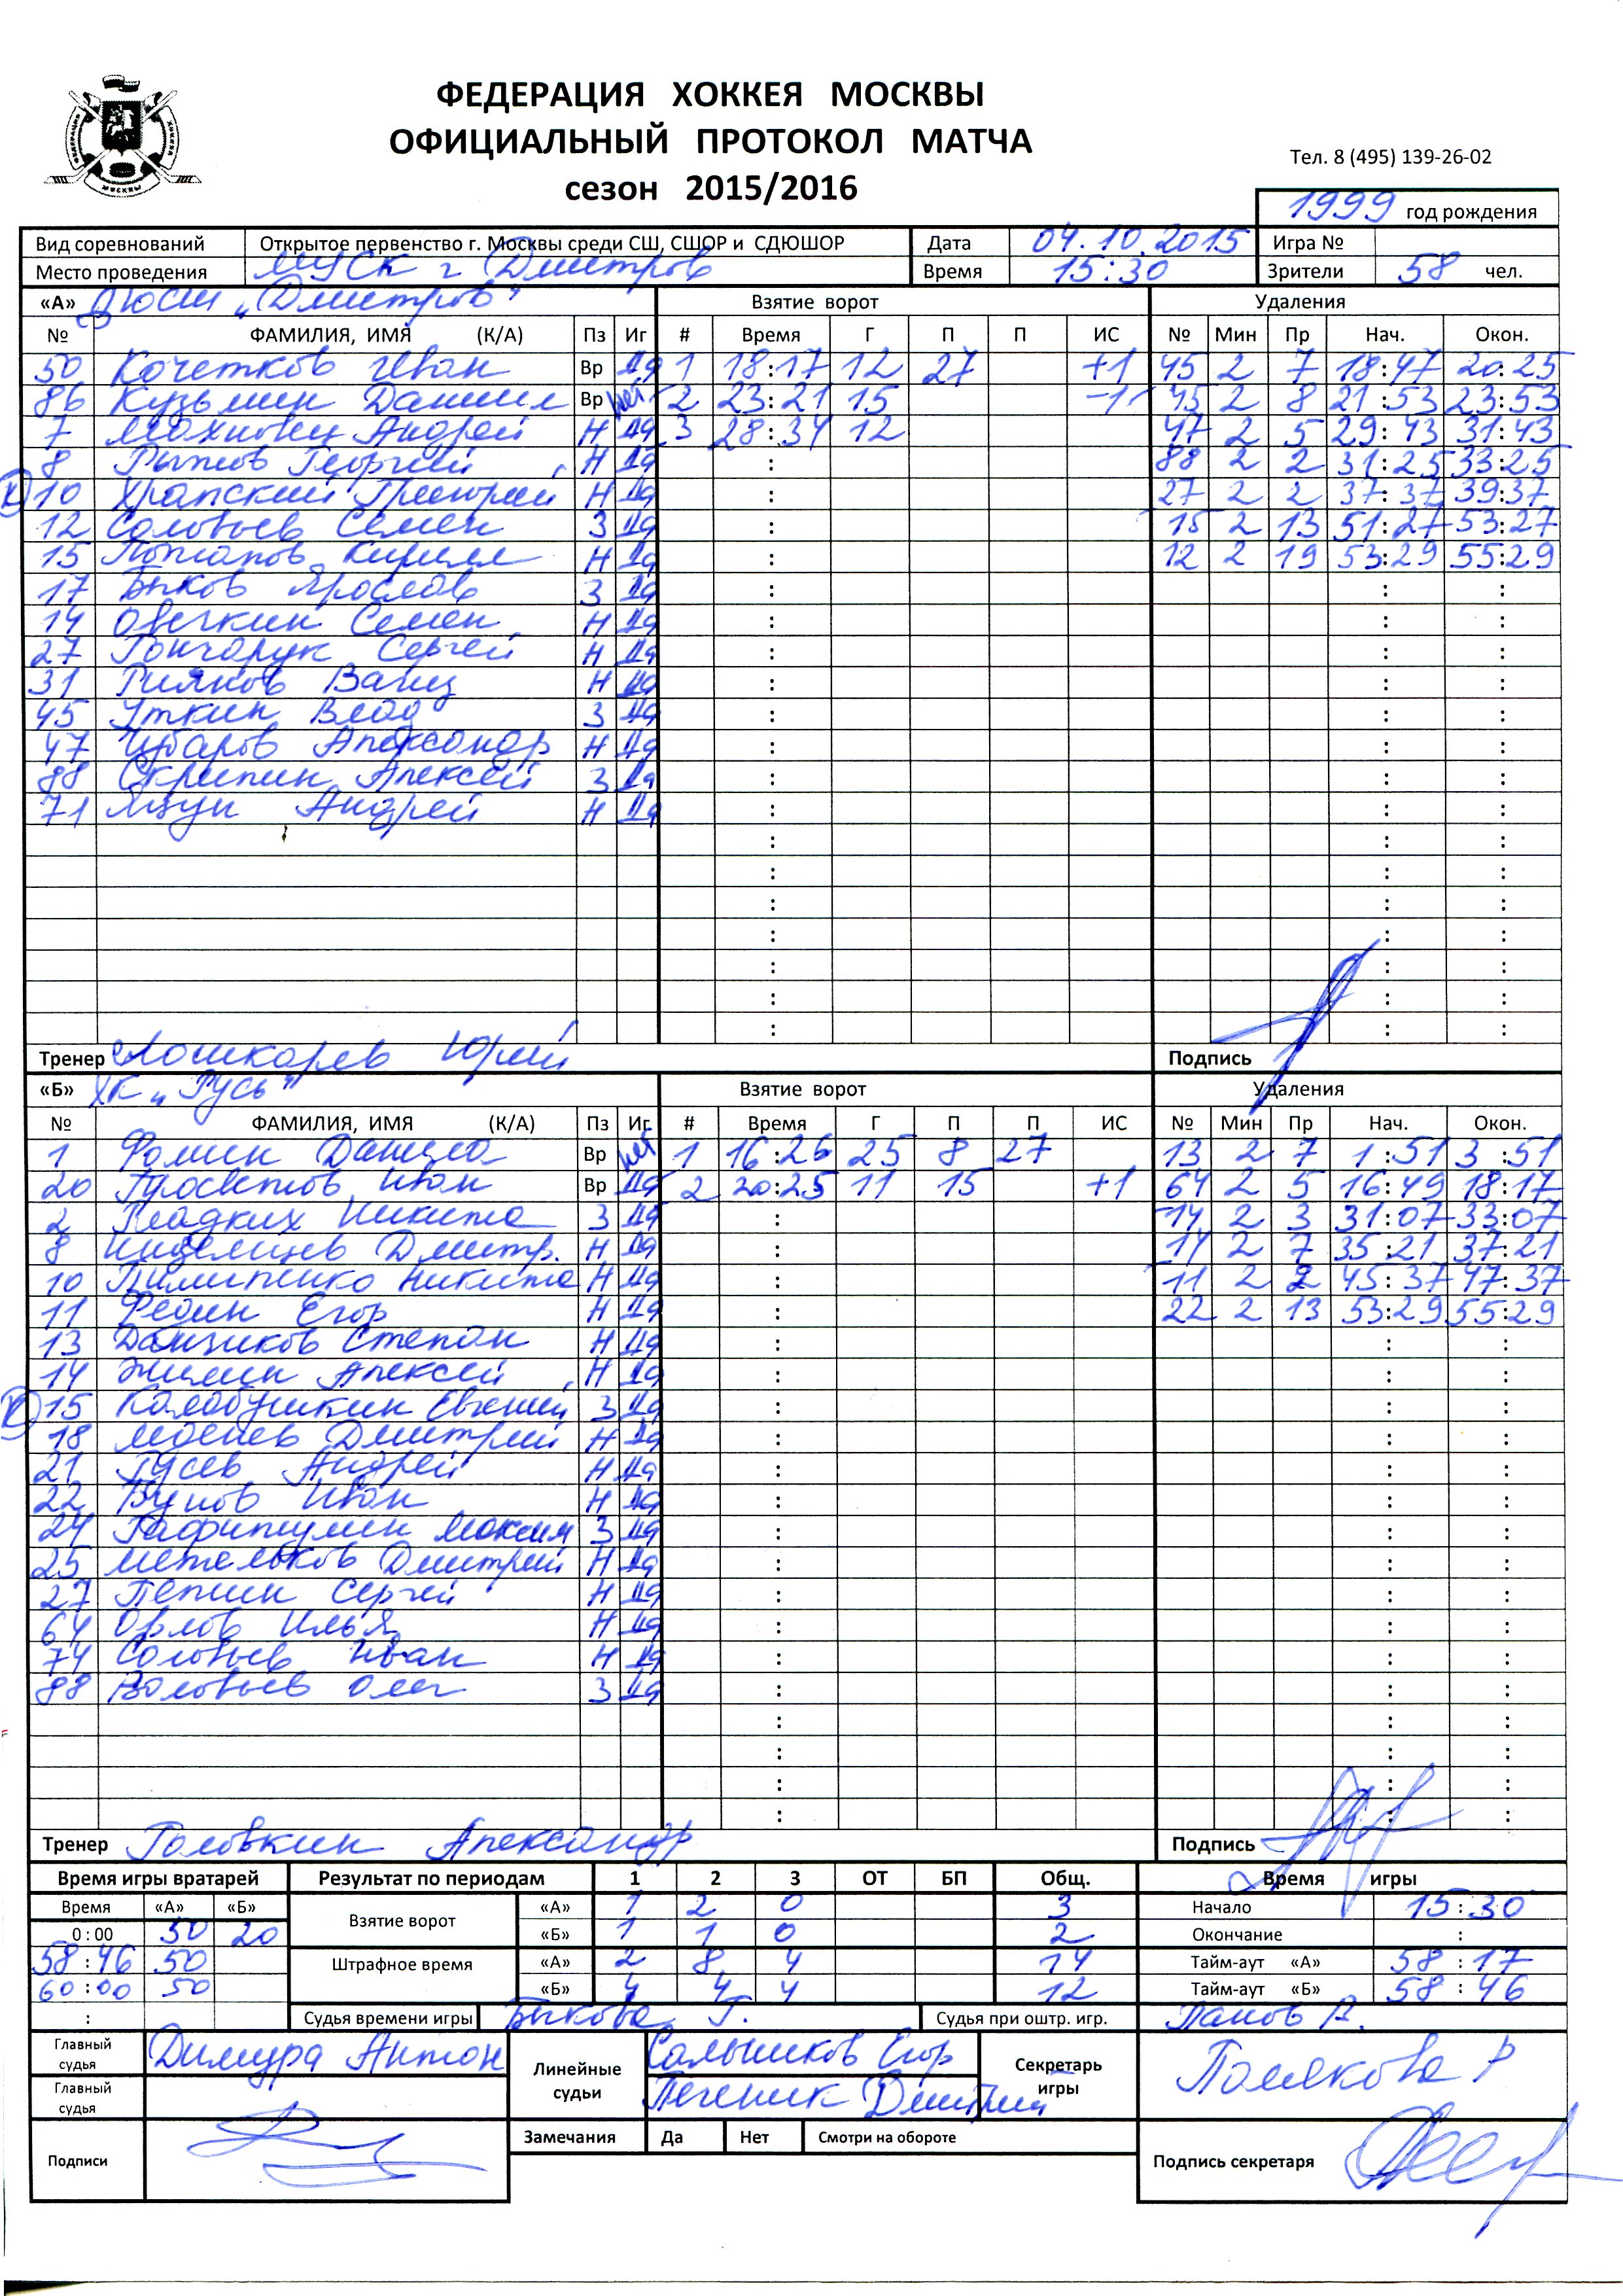 ФЕДЕРАЦИЯ ХОККЕЯ МОСКВЫ
ОФИЦИАЛЬНЫЙ ПРОТОКОЛ МАТЧА
Тел. 8 (495) 139-26-02
сезон 2015/2016
1999 год рождения
Вид соревнований Открытое первенство г. Москвы среди СШ, СШОР и СДЮШОР Дата 04.10.2015 Игра №
Место проведения МУСК г Дмитров Время 15:30 Зрители 58 чел.
«А» ДЮСШ „Дмитров" Взятие ворот Удаления
№ ФАМИЛИЯ, ИМЯ (К/А) Пз Иг # Время Г П П ИС № Мин Пр Нач. Окон.
50 Кочетков Иван Вр Да 1 18:17 12 27 +1 45 2 7 18:47 20:25
86 Кузьмин Даниил Вр нет 2 23:21 15 -1 45 2 8 21:53 23:53
7 Махновец Андрей Н Да 3 28:34 12 47 2 5 29:43 31:43
8 Рыжов Георгий Н Да : 88 2 2 31:25 33:25
К 10 Храпский Григорий Н Да : 27 2 2 37:37 39:37
12 Соловьев Семен З Да : 15 2 13 51:27 53:27
15 Потапов Кирилл Н Да : 12 2 19 53:29 55:29
17 Быков Ярослав З Да : : :
14 Овечкин Семен Н Да : : :
27 Гончарук Сергей Н Да : : :
31 Вагиз Н Да : : :
45 Уткин Влад З Да : : :
47 Александр Н Да : : :
88 Скрипин Алексей З Да : : :
71 Яцун Андрей Н Да : : :
Тренер Лошкарев Юрий Подпись
«Б» ХК „Русь" Взятие ворот Удаления
№ ФАМИЛИЯ, ИМЯ (К/А) Пз Иг # Время Г П П ИС № Мин Пр Нач. Окон.
1 Фомин Данила Вр нет 1 16:26 25 8 27 13 2 7 1:51 3:51
20 Просветов Иван Вр Да 2 20:25 11 15 +1 64 2 5 16:49 18:17
2 Гладких Никита З Да : 14 2 3 31:07 33:07
8 Дмитр. Н Да : 14 2 7 35:21 37:21
10 Пилипенко Никита Н Да : 11 2 2 45:37 47:37
11 Федин Егор Н Да : 22 2 13 53:29 55:29
13 Степан Н Да : : :
14 Жилин Алексей Н Да : : :
К 15 Калабушкин Евгений З Да : : :
18 Дмитрий Н Да : : :
21 Гусев Андрей Н Да : : :
22 Иван Н Да : : :
24 Гафитулин Максим З Да : : :
25 Метельков Дмитрий Н Да : : :
27 Пепин Сергей Н Да : : :
64 Орлов Илья Н Да : : :
74 Соловьев Иван Н Да : : :
88 Воловьев Олег З Да : : :
Тренер Головкин Александр Подпись
Время игры вратарей Результат по периодам 1 2 3 ОТ БП Общ. Время игры
Время «А» «Б» Взятие ворот «А» 1 2 0 3 Начало 15:30
0:00 50 20 «Б» 1 1 0 2 Окончание :
58:46 50 Штрафное время «А» 2 8 4 14 Тайм-аут «А» 58:17
60:00 50 «Б» 4 4 4 12 Тайм-аут «Б» 58:46
: Судья времени игры Быкова Г. Судья при оштр. игр. Панов А.
Главный судья Димура Антон Линейные судьи Салышков Егор Секретарь игры Полякова Р
Главный судья Печеник Дмитрий
Замечания Да Нет Смотри на обороте
Подписи Подпись секретаря